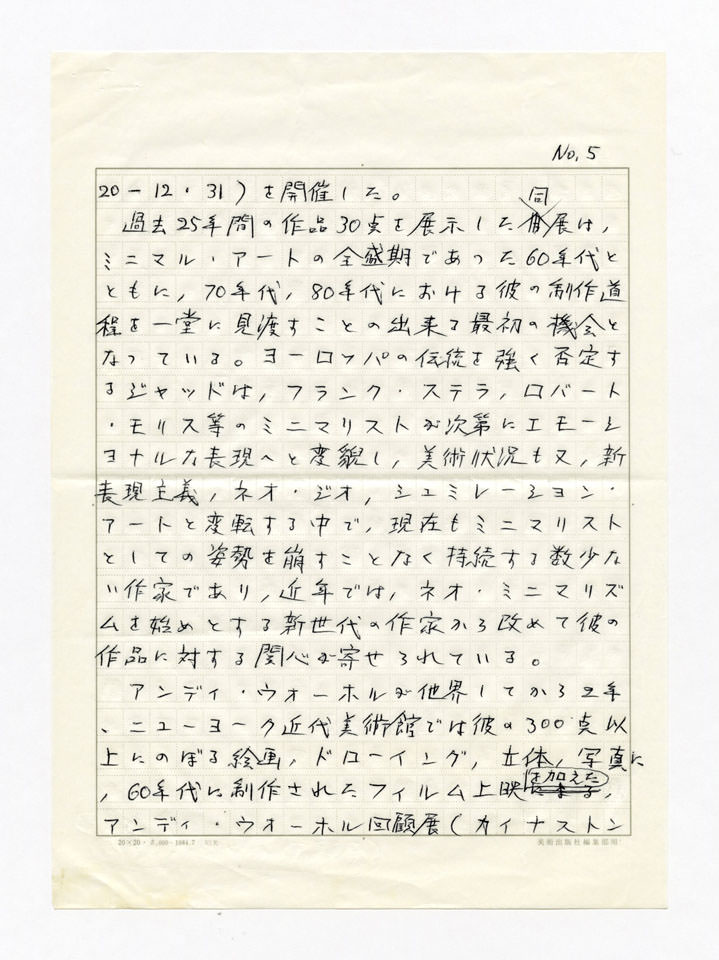 No. 5
20－12・31）を開催した。
同
過去25年間の作品30点を展示した展は，
ミニマル・アートの全盛期であった60年代と
ともに，70年代，80年代における彼の制作道
程を一堂に見渡すことの出来る最初の機会と
なっている。ヨーロッパの伝統を強く否定す
るジャッドは，フランク・ステラ，ロバート
・モリス等のミニマリストが次第にエモーシ
ョナルな表現へと変貌し，美術状況も又，新
表現主義，ネオ・ジオ，シュミレーション・
アートと変転する中で，現在もミニマリスト
としての姿勢を崩すことなく持続する数少な
い作家であり，近年では，ネオ・ミニマリズ
ムを始めとする新世代の作家から改めて彼の
作品に対する関心が寄せられている。
アンディ・ウォーホルが他界してから2年
、ニューヨーク近代美術館では彼の300点以
上にのぼる絵画，ドローイング，立体，写真に
を加えた
，60年代に制作されたフィルム上映，
アンディ・ウォーホル回顧展（カイナストン
20×20・1984.7
美術出版社編集部用